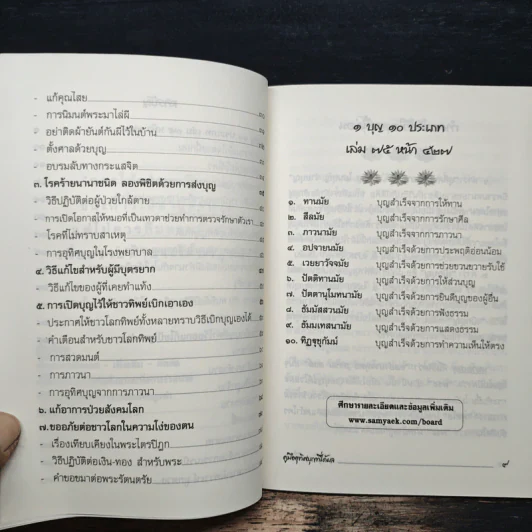 - แก้คุณไสย
- การนิมนต์พระมาไล่ผี
- อย่าติดผ้ายันต์กันผีไว้ในบ้าน
- ตั้งศาลด้วยบุญ
- อบรมลับทางกระแสจิต
๓. โรคร้ายนานาชนิด ลองพิชิตด้วยการส่งบุญ
- วิธีปฏิบัติต่อผู้ป่วยใกล้ตาย
- การเปิดโอกาสให้หมอที่เป็นเทวดาช่วยทำการตรวจรักษาตัวเรา
- โรคที่ไม่ทราบสาเหตุ
- การอุทิศบุญในโรงพยาบาล
๔. วิธีแก้ไขสำหรับผู้มีบุตรยาก
- วิธีแก้ไขของผู้ที่เคยทำแท้ง
๕. การเปิดบุญไว้ให้ชาวทิพย์เบิกเอาเอง
- ประกาศให้ชาวโลกทิพย์ทั้งหลายทราบวิธีเบิกบุญเองได้
- คำเตือนสำหรับชาวโลกทิพย์
- การสวดมนต์
- การภาวนา
- การอุทิศบุญจากการภาวนา
๖. แก้อาการป่วยสังคมโลก
๗.ขออภัยต่อชาวโลกในความโง่ของตน
- เรื่องเทียบเคียงในพระไตรปิฎก
- วิธีปฏิบัติต่อเงิน-ทอง สำหรับพระ
- คำขอขมาต่อพระรัตนตรัย
๑ บุญ ๑๐ ประเภท
เล่ม ๗๕ หน้า ๔๒๗
๑. ทานมัย บุญสำเร็จจากการให้ทาน
๒. สีลมัย บุญสำเร็จจากการรักษาศีล
๓. ภาวนามัย บุญสำเร็จจากการภาวนา
๔. อปจายนมัย บุญสำเร็จด้วยการประพฤติอ่อนน้อม
๕. เวยยาวัจจมัย บุญสำเร็จด้วยการช่วยขวนขวายรับใช้
๖. ปัตติทานมัย บุญสำเร็จด้วยการให้ส่วนบุญ
๗. ปัตตานุโมทนามัย บุญสำเร็จด้วยการยินดีบุญของผู้อื่น
๘. ธัมมัสสวนมัย บุญสำเร็จด้วยการฟังธรรม
๙. ธัมมเทสนามัย บุญสำเร็จด้วยการแสดงธรรม
๑๐. ทิฏฐุชุกัมม์ บุญสำเร็จด้วยการทำความเห็นให้ตรง
ศึกษารายละเอียดและข้อมูลเพิ่มเติม
www.samyaek.com/board
๙